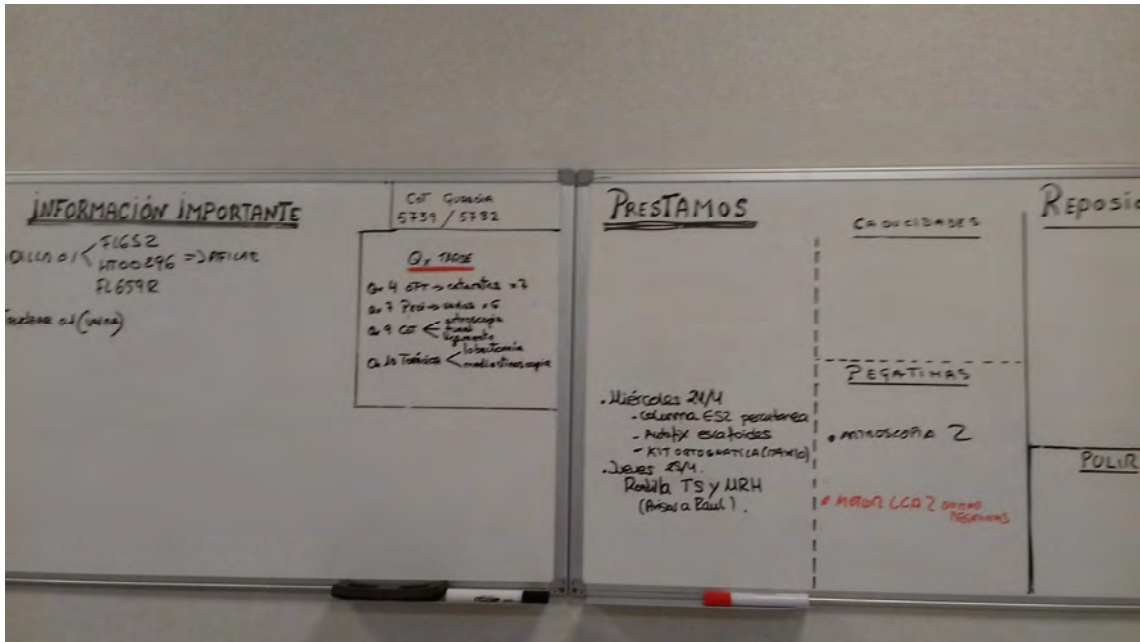 INFORMACIÓN IMPORTANTE
FL652
HT00296 => AFILAR
FL659R
COT GUARDIA
5739 / 5782
Qx TARDE
Qx 4 OFT → cataratas x7
Qx 9 COT
artroscopia
ligamento
Qx 10 Torácica
lobectomía
mediastinoscopia
PRESTAMOS
• Miércoles 24/4
- Columna ES2 percutanea
- Autofix escafoides
- KIT ORTOGNATICA (MAXILO)
• Jueves 25/4.
Rodilla TS y MRH
(Avisar a Raul).
CADUCIDADES
PEGATINAS
• ARTROSCOPIA 2
• MOTOR LCA 2
REPOSIC
POLIR